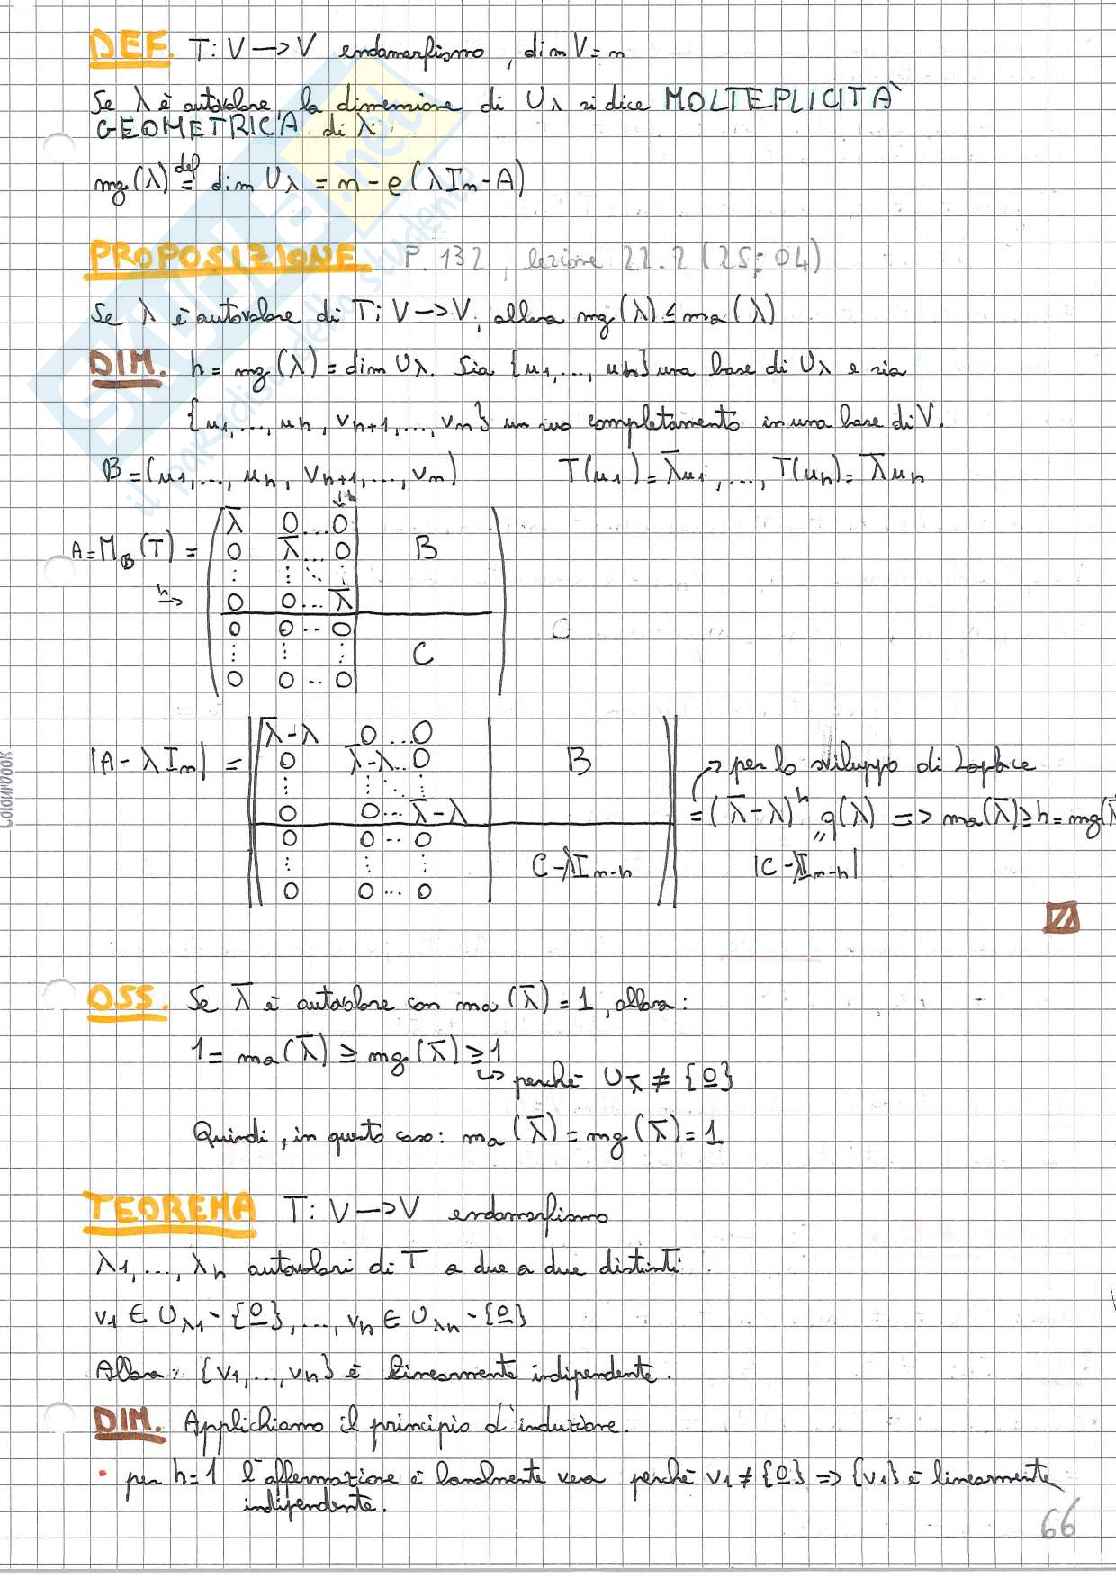 DEF. T: V → V endomorfismo, dim V = n
Se λ è autovalore, la dimensione di Uλ si dice MOLTEPLICITÀ
GEOMETRICA di λ.
mg(λ) def= dim Uλ = n - ρ(λIn - A)
PROPOSIZIONE P. 132, lezione 22.2 (25/04)
Se λ è autovalore di T: V → V, allora mg(λ) ≤ ma(λ)
DIM. h = mg(λ) = dim Uλ. Sia {u1, ..., uh} una base di Uλ e sia
{u1, ..., uh, vh+1, ..., vn} un suo completamento in una base di V.
B = (u1, ..., uh, vh+1, ..., vn) T(u1) = λ̄u1, ..., T(uh) = λ̄uh
↓h
λ̄ 0...0
A = MB(T) = 0 λ̄...0 B
⋮ ⋮ ⋱ ⋮
h→ 0 0...λ̄
0 0..0
⋮ ⋮ ⋮ C
0 0..0
λ̄-λ 0...0
|A - λIn| = 0 λ̄-λ..0 B → per lo sviluppo di Laplace
⋮ ⋮ ⋱ ⋮
0 0...λ̄-λ = (λ̄-λ)^h q(λ) => ma(λ̄) ≥ h = mg(λ̄
0 0..0 "
⋮ ⋮ ⋮ C-λIn-h |C-λIn-h|
0 0...0
OSS. Se λ̄ è autovalore con ma(λ̄) = 1, allora:
1 = ma(λ̄) ≥ mg(λ̄) ≥ 1
↳ perché Uλ̄ ≠ {0}
Quindi, in questo caso: ma(λ̄) = mg(λ̄) = 1
TEOREMA T: V → V endomorfismo
λ1, ..., λh autovalori di T a due a due distinti.
v1 ∈ Uλ1 - {0}, ..., vh ∈ Uλh - {0}
Allora: {v1, ..., vh} è linearmente indipendente.
DIM. Applichiamo il principio d'induzione.
• per h=1 l'affermazione è banalmente vera perché v1 ≠ {0} => {v1} è linearmente
indipendente.
66